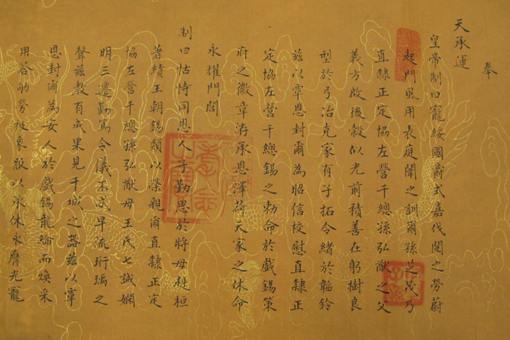 奉
天承運
皇帝制曰寵綏國爵式嘉伐閱之勞蔚
起門風用表庭闈之訓爾孫芝茂乃
直隸正定協左營千總孫弘猷之父
義方啟後穀似光前積善在躬樹良
型於弓冶克家有子拓令緒於韜鈐
茲以覃恩封爾為昭信校慰直隸正
定協左營千總錫之勅命於戲錫策
府之徽章洊承恩澤荷天家之休命
永耀門閭
制曰怙恃同恩人子勤思於將母赳桓
著績王朝錫類以榮親爾直隸正定
協左營千總孫弘猷母王氏七誡嫻
明三遷勤篤令儀不忒早流珩瑀之
聲慈教有成果見干城之器茲以覃
恩封爾為安人於戲錫龍綸而煥采
用答劬勞被象服以承休永膺光寵